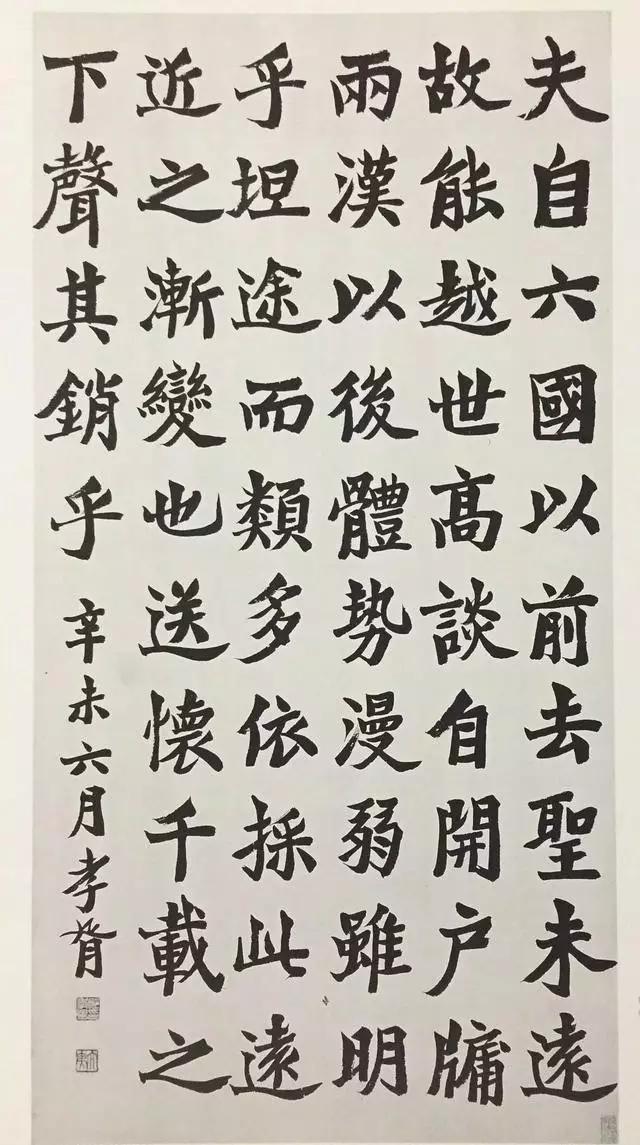 夫自六國以前去聖未遠
故能越世高談自開户牗
兩漢以後體势漫弱雖明
乎坦途而類多依採此遠
近之漸變也送懷千載之
下聲其銷乎
辛未六月孝胥